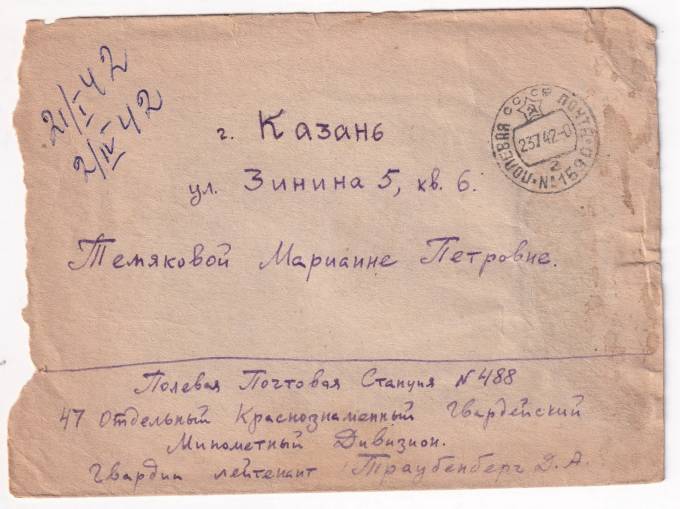 21/I-42
2/IV-42
г. Казань
ул. Зинина 5, кв. 6.
Темяковой Марианне Петровне.
СССР
ПОЛЕВАЯ ПОЧТА
237 42-0
2
Полевая Почтовая Станция N 488
47 Отдельный Краснознаменный Гвардейский
Минометный Дивизион.
Гвардии лейтенант Траубенберг Д. А.